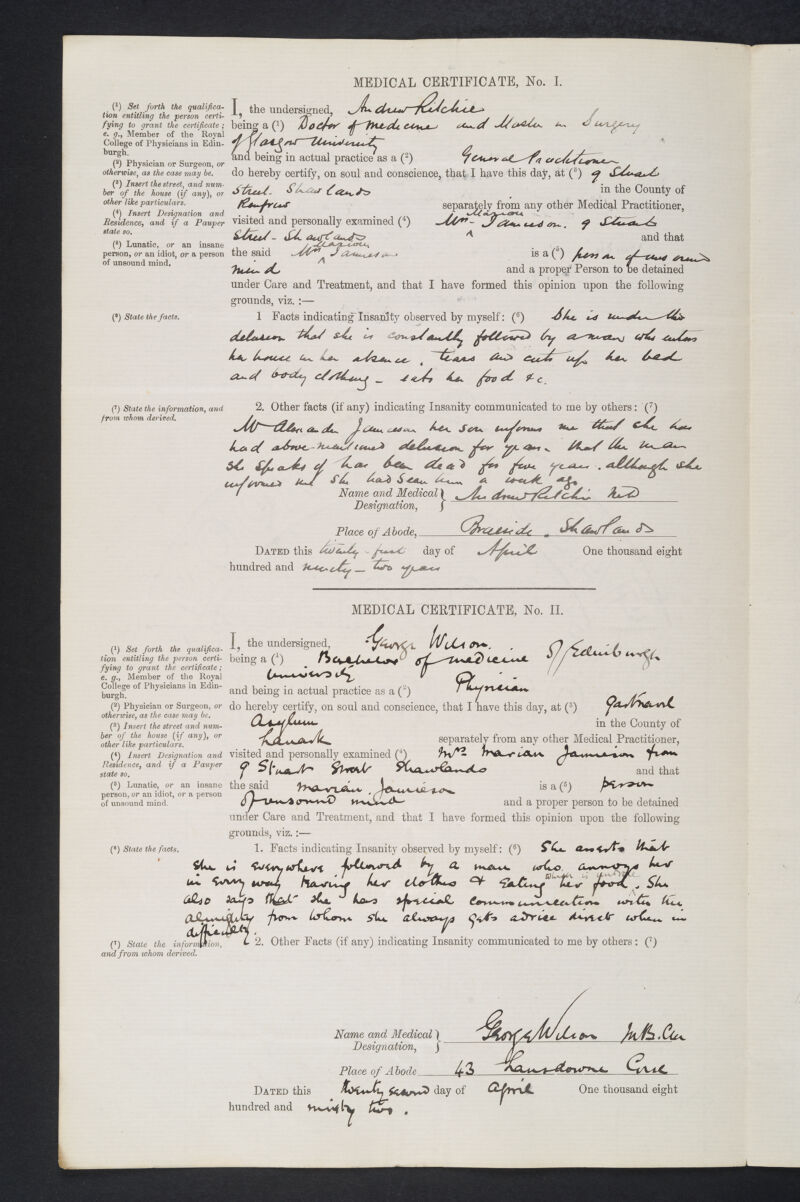 MEDICAL CERTIFICATE, No. I.
(¹) Set forth the qualifica-
tion entitling the person certi-
fying to grant the certificate;
e. g., Member of the Royal
College of Physicians in Edin-
burgh.
(²) Physician or Surgeon, or
otherwise, as the case may be.
(³) Insert the street, and num-
ber of the house (if any), or
other like particulars.
(⁴) Insert Designation and
Residence, and if a Pauper
state so.
(⁵) Lunatic, or an insane
person, or an idiot, or a person
of unsound mind.
I, the undersigned, Andrew Ritchie
being a (¹) Doctor of medicine and Master in Surgery
of Glasgow University
and being in actual practice as a (²) General Practitioner
do hereby certify, on soul and conscience, that I have this day, at (³) 9 Stuart
Street. Shawlands in the County of
Renfrew separately from any other Medical Practitioner,
visited and personally examined (⁴) Mrs Marion Jamieson. 9 Stuart
Street - Shawlands and that
the said Mrs Marion Jamieson is a (⁵) person of unsound
mind and a proper Person to be detained
under Care and Treatment, and that I have formed this opinion upon the following
grounds, viz. :—
(⁶) State the facts.
1 Facts indicating Insanity observed by myself: (⁶) She is under the
delusion that she is constantly followed by a man who enters
her house in her absence, tears and cuts up her bed
and body clothing - eats her food &c.
(⁷) State the information, and
from whom derived.
2. Other facts (if any) indicating Insanity communicated to me by others: (⁷)
Mr Alexander Jamieson her son informs me that she has
had above-mentioned delusion for years - that the man
she speaks of has been dead for five years. although she
informed me she had seen him a week ago
Name and Medical Designation, Andrew Ritchie MD
Place of Abode, Braeside, Shawlands
DATED this twenty-first day of April One thousand eight
hundred and ninety-two years
MEDICAL CERTIFICATE, No. II.
(¹) Set forth the qualifica-
tion entitling the person certi-
fying to grant the certificate;
e. g., Member of the Royal
College of Physicians in Edin-
burgh.
(²) Physician or Surgeon, or
otherwise, as the case may be.
(³) Insert the street and num-
ber of the house (if any), or
other like particulars.
(⁴) Insert Designation and
Residence, and if a Pauper
state so.
(⁵) Lunatic, or an insane
person, or an idiot, or a person
of unsound mind.
I, the undersigned, George Wilson.
being a (¹) Bachelor of medicine of Edinburgh
University
and being in actual practice as a (²) Physician
do hereby certify, on soul and conscience, that I have this day, at (³) Gartnavel
Asylum in the County of
Lanark separately from any other Medical Practitioner,
visited and personally examined (⁴) Mrs Marian Jamieson from
9 Stuart Street Shawlands and that
the said Marian Jamieson is a (⁵) person
of unsound mind and a proper person to be detained
under Care and Treatment, and that I have formed this opinion upon the following
grounds, viz. :—
(⁶) State the facts.
1. Facts indicating Insanity observed by myself: (⁶) She asserts that
she is everywhere followed by a man who annoys her
in every way tearing her clothes & eating her food. She
also says that she has special communication with the
almighty from whom she always gets advice direct when in
difficulty.
(⁷) State the information,
and from whom derived.
2. Other Facts (if any) indicating Insanity communicated to me by others: (⁷)
Name and Medical Designation, George Wilson M.B. Cm
Place of Abode 43 Lansdowne Cresc
DATED this twenty second day of April One thousand eight
hundred and ninety two.